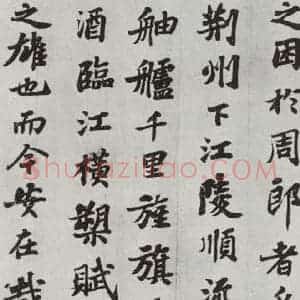 之困於周郎者
荆州下江陵順流
舳艫千里旌旗
酒臨江橫槊賦
之雄也而今安在哉
Shufaziliao.com